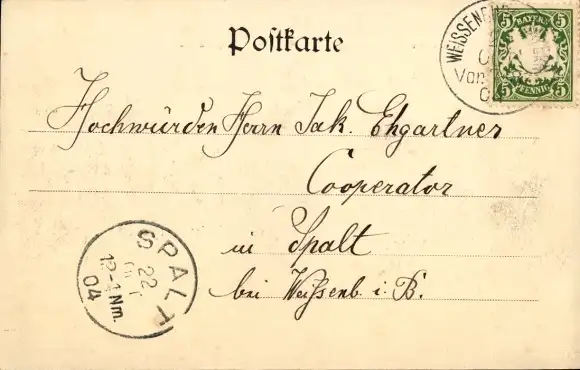 Postkarte
BAYERN
5 5
5 PFENNIG 5
WEISSENB
Vor
Hochwürden Herrn Jak. Ehgartner
Cooperator
in Spalt
bei Weissenb. i. B.
SPALT
22
12-1 Nm.
04